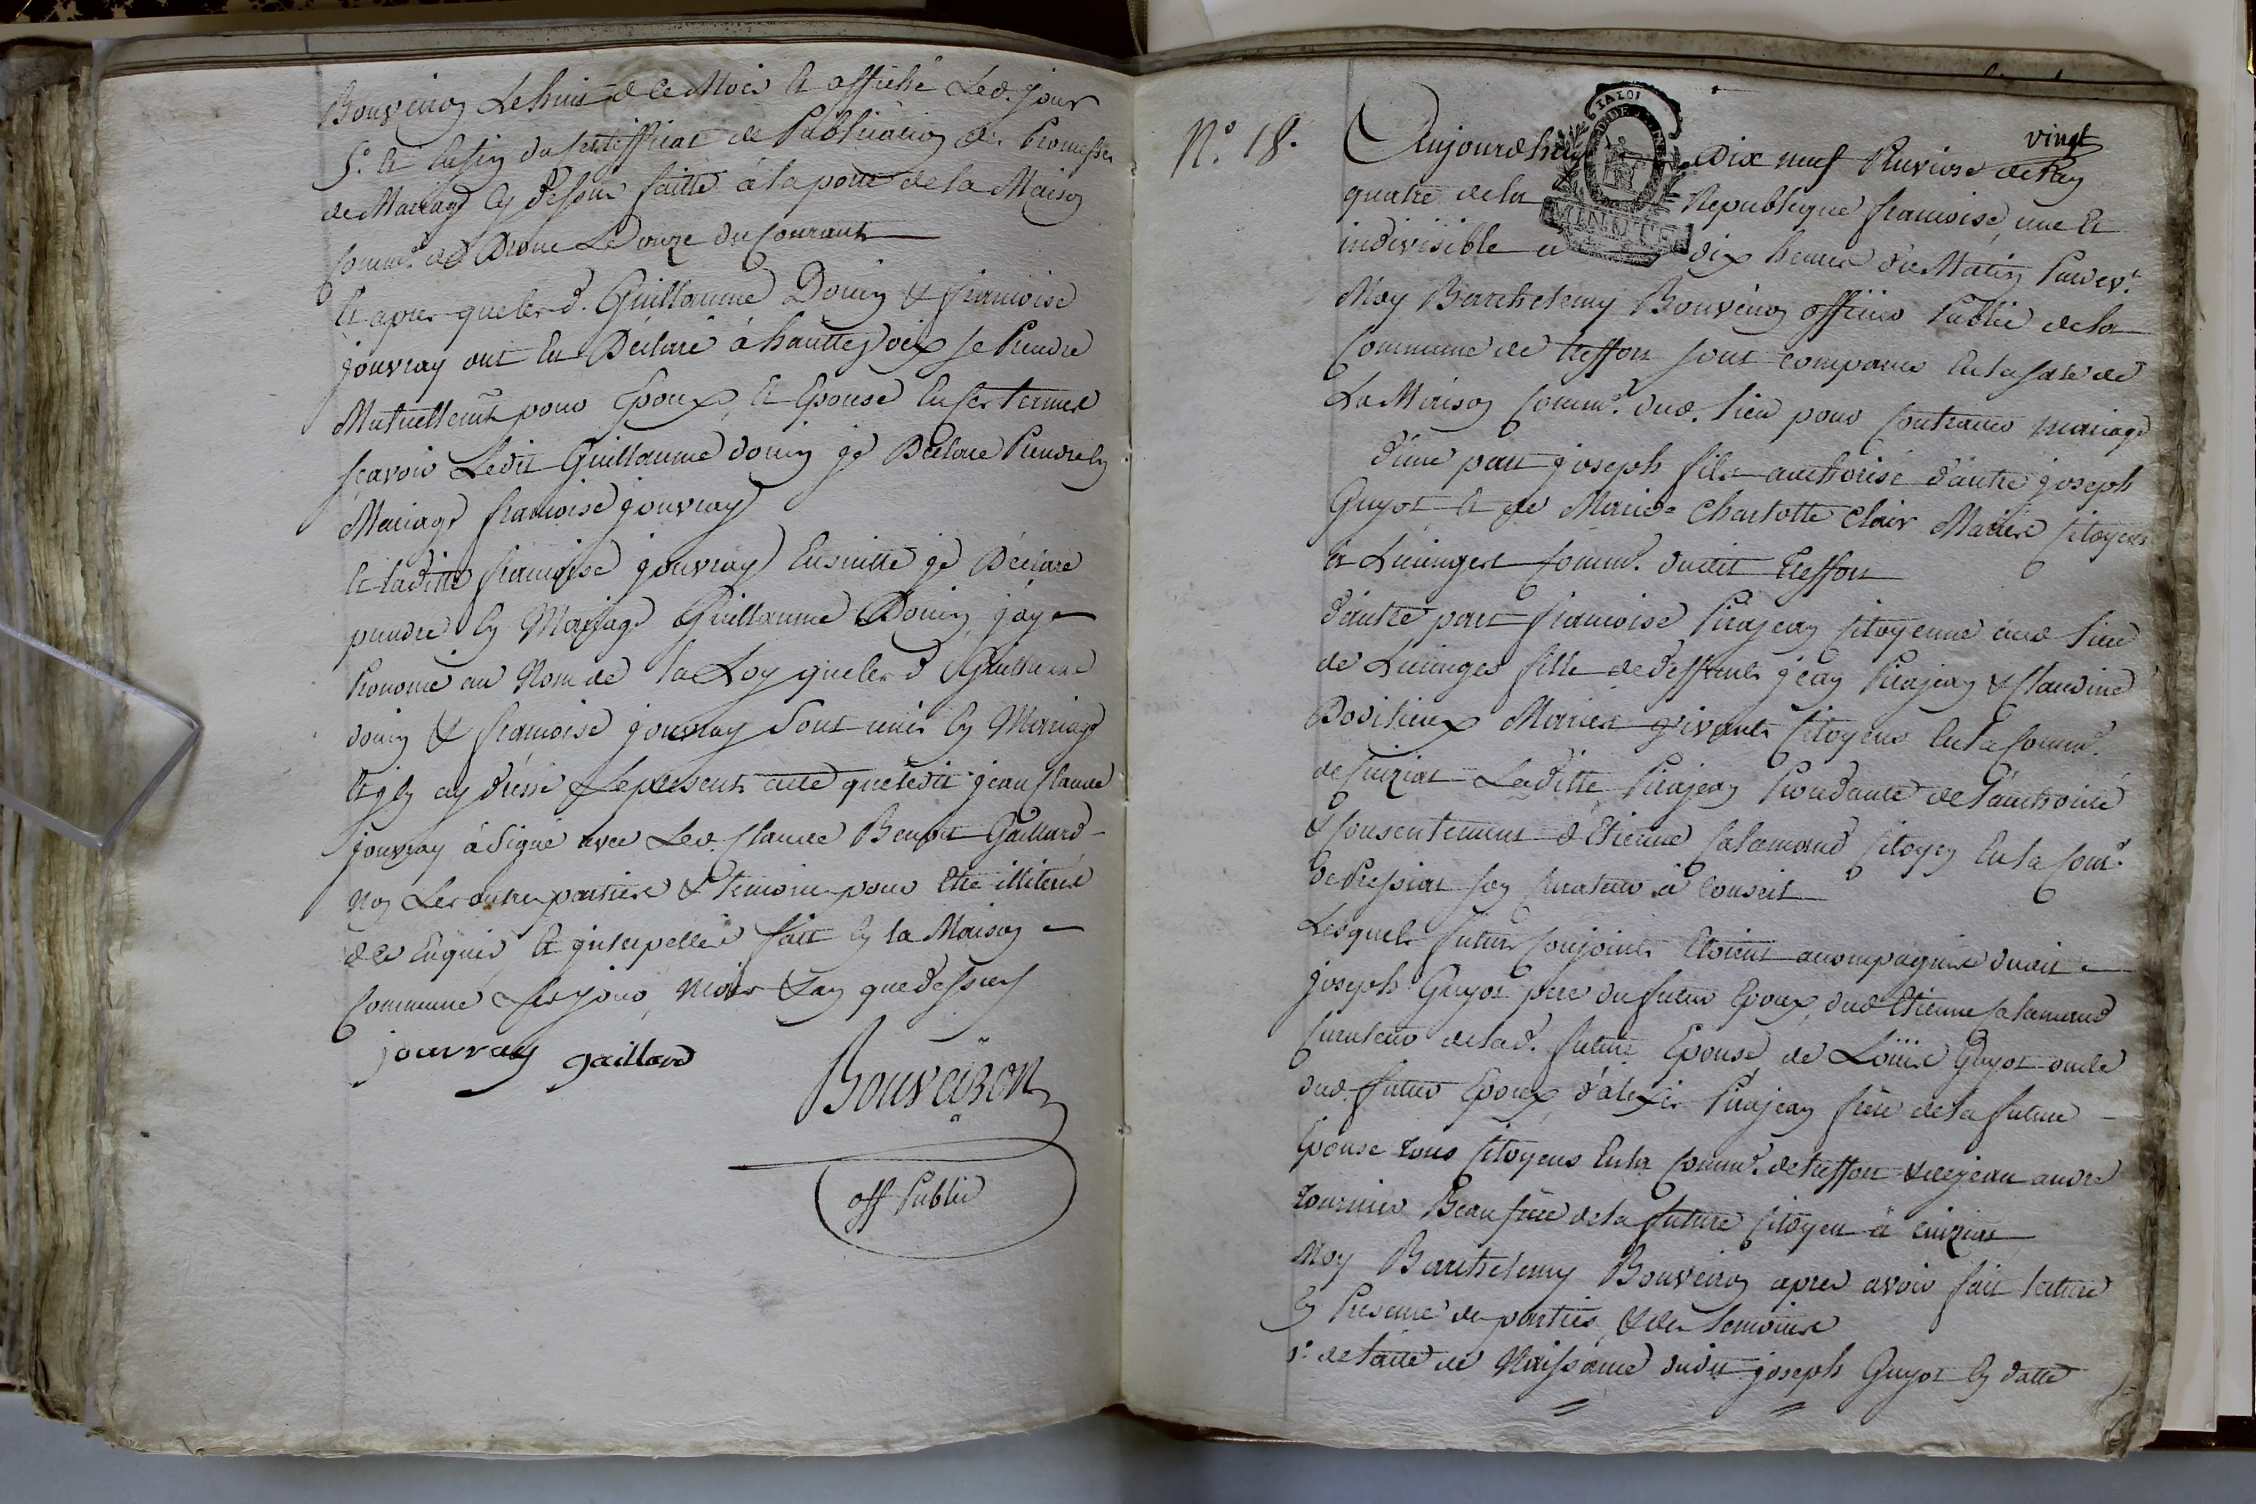 Bouveiron Le huit de ce Mois Et affiché Led. jour
5.° Et Enfin du Certifficat de Publication des Promesses
de Mariage Cy dessus faitte à la porte de la Maison
Commne de Drom Le onze du Courant
Et apres que lesd. Guillaume Douin & francoise
jouvray ont Eu Déclaré à hautte voix se Prendre
Mutuellemt pour Epoux Et Epouse En ses termes
sçavoir Ledit Guillaume douin je Déclare Prendre En
Mariage francoise jouvray
Et laditte francoise jouvray Ensuitte je Déclare
prendre En Mariage Guillaume Douin, j'ay
Prononcé au Nom de la Loy que lesd Guillaume
douin & francoise jouvray Sont unis En Mariage
Et j'En ay dressé Le present acte que ledit jean Claude
jouvray à Signé avec Led. Claude Benoit Gaillard
Non Les autres parties & temoins pour Etre illiteré
de ce Enquis Et jnterpellés fait En la Maison
Commune Les jour, Mois & an que dessus
jouvray gaillard
Bouveiron
off Public
N.° 18. Aujourdhuy Dix neuf Pluviose de l'an vingt
quatre de la Republique francoise, une Et
MINUTE
indivisible à dix heures du Matin Pardevt.
Moy Barthelemy Bouveiron officier Public de la
Commune de treffort sont comparus En la sale de
La Maison Commne dud. Lieu pour Contracter mariage
d'une part joseph fils authorisé d'autre joseph
Guyot Et de Marie Charlotte Clair Mariés Citoyens
à Lucinges Commne dudit treffort
d'autre part francoise Pirajean Citoyenne aud Lieu
de Lucinges fille de deffunts jean Pirajean & Claudine
Mariés vivants Citoyens En la Commne
de Cuiziat Laditte Pirajean Procédante de l'authorité
& Consentement d'Etienne Salamand Citoyen En la Comne
de Pressiat son Curateur à Conseil
Lesquels futurs Conjoints Etoient accompagnés dudit
joseph Guyot pere du futur Epoux, dud Etienne Salamand
Curateur de lad. future Epouse de Loüis Guyot oncle
dud. futur Epoux, d'alexis Pirajean frere de la future
Epouse tous Citoyens En la Commne de treffort & de jean andre
tournier Beau frere de la future Citoyen à Cuiziat
Moy Barthelemy Bouveiron apres avoir fait lecture
En Presence des parties & des temoins
1.° de l'acte de Naissance dudit joseph Guyot En datte